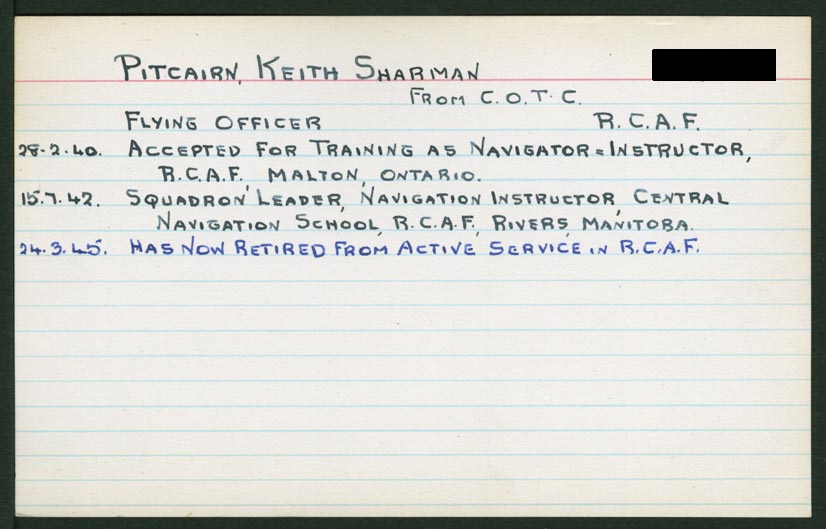 PITCAIRN, KEITH SHARMAN
FROM C.O.T.C.
FLYING OFFICER R.C.A.F.
28.2.40. ACCEPTED FOR TRAINING AS NAVIGATOR=INSTRUCTOR,
R.C.A.F. MALTON, ONTARIO.
15.7.42. SQUADRON LEADER, NAVIGATION INSTRUCTOR, CENTRAL
NAVIGATION SCHOOL, R.C.A.F., RIVERS, MANITOBA.
24.3.45. HAS NOW RETIRED FROM ACTIVE SERVICE IN R.C.A.F.